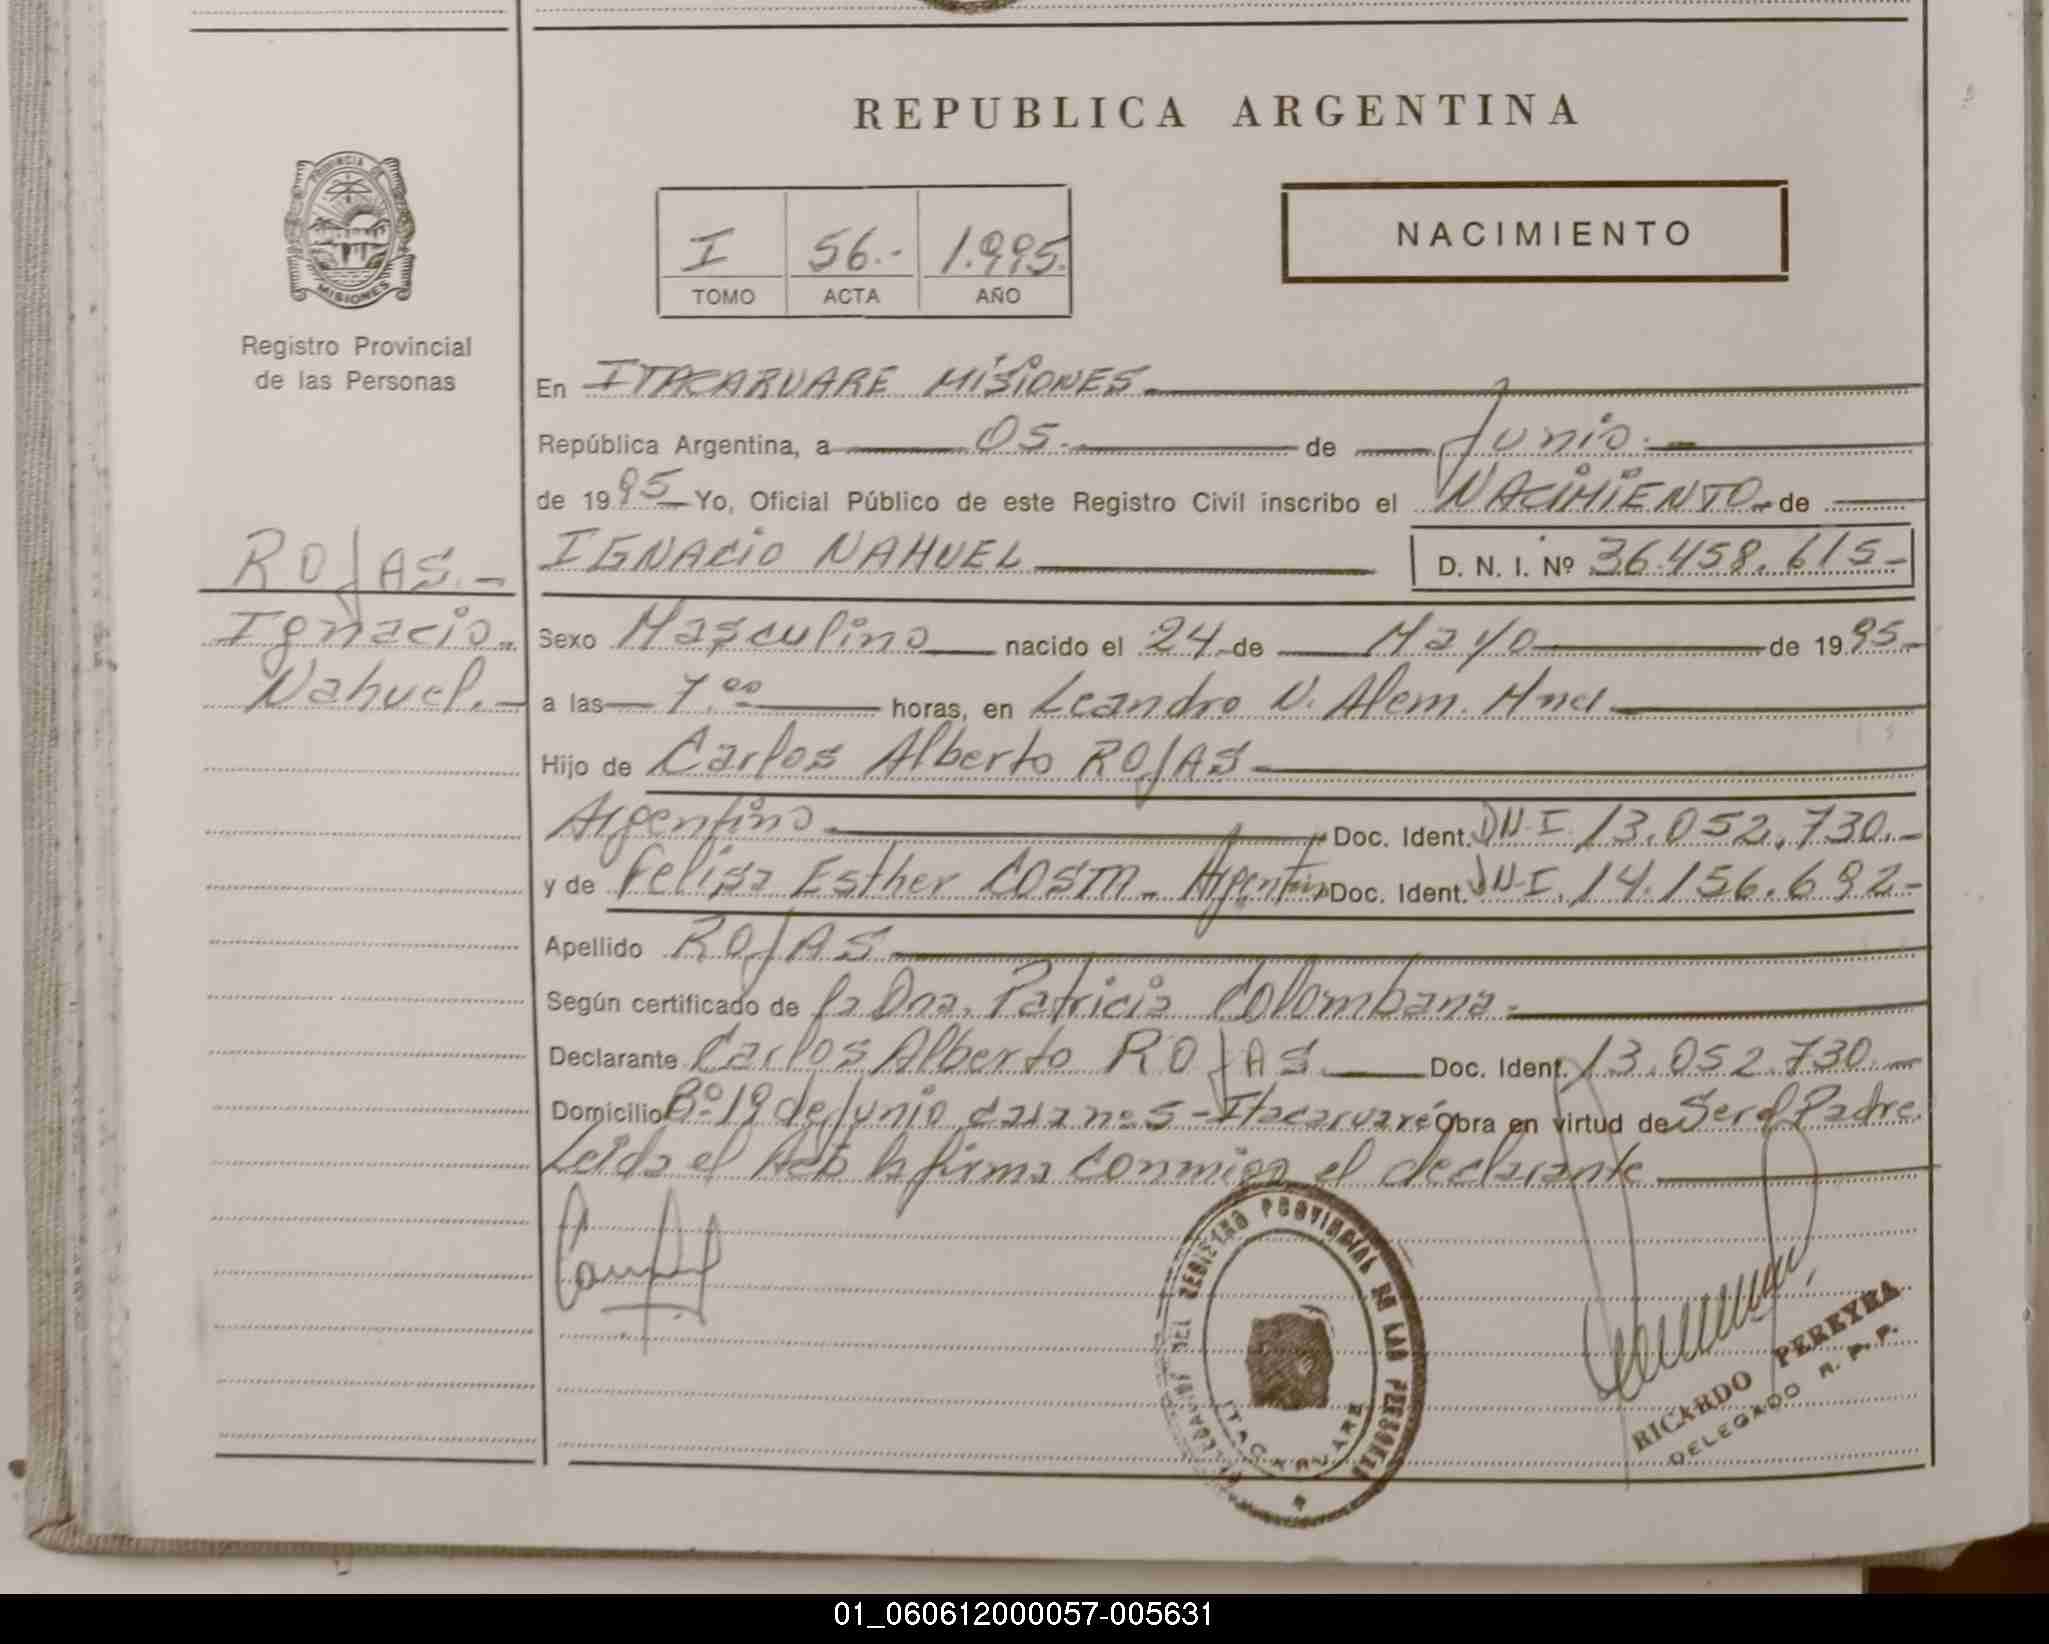 REPUBLICA ARGENTINA
PROVINCIA DE
MISIONES
Registro Provincial
de las Personas
I 56.- 1.995.
TOMO ACTA AÑO
NACIMIENTO
En ITACARUARE MISIONES
República Argentina, a 05. de Junio.
de 1995 Yo, Oficial Público de este Registro Civil inscribo el NACIMIENTO de
ROJAS.-
Ignacio
Nahuel.-
IGNACIO NAHUEL D. N. I. Nº 36.458.615-
Sexo Masculino nacido el 24 de Mayo de 1995.-
a las 7.00 horas, en Leandro N. Alem. Mnes
Hijo de Carlos Alberto ROJAS
Argentino Doc. Ident. DN.I. 13.052.730.-
y de Felisa Esther Doc. Ident. DN.I. 14.156.692-
Apellido ROJAS
Según certificado de la Dra. Patricia Colombana.
Declarante Carlos Alberto ROJAS. Doc. Ident. 13.052.730.
Domicilio Bº.19 de Junio casa nº 5 - Itacaruaré Obra en virtud de Ser el Padre.
Leida el Acta la firma conmigo el declarante
REGISTRO PROVINCIAL DE LAS PERSONAS
ITACARUARE
RICARDO PEREYRA
DELEGADO R. P. P.
01_060612000057-005631